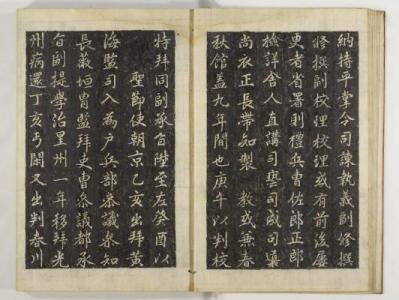 納持平掌令司諫執義副修撰
修撰副校理校理或有前後屢
更者省署則禮兵曹佐郎正郎
檢詳舍人直講司藝司成司䆃
尚衣正長帶知製 教或兼春
秋館盖九年間也庚午以判校
特拜同副承旨陞至左癸酉以
聖節使朝京乙亥出拜黃
海監司入為戶兵部參議參知
長薇垣胄監拜吏曹參議都承
旨副提學治星州一年移拜光
州病還丁亥丐閑又出判春川